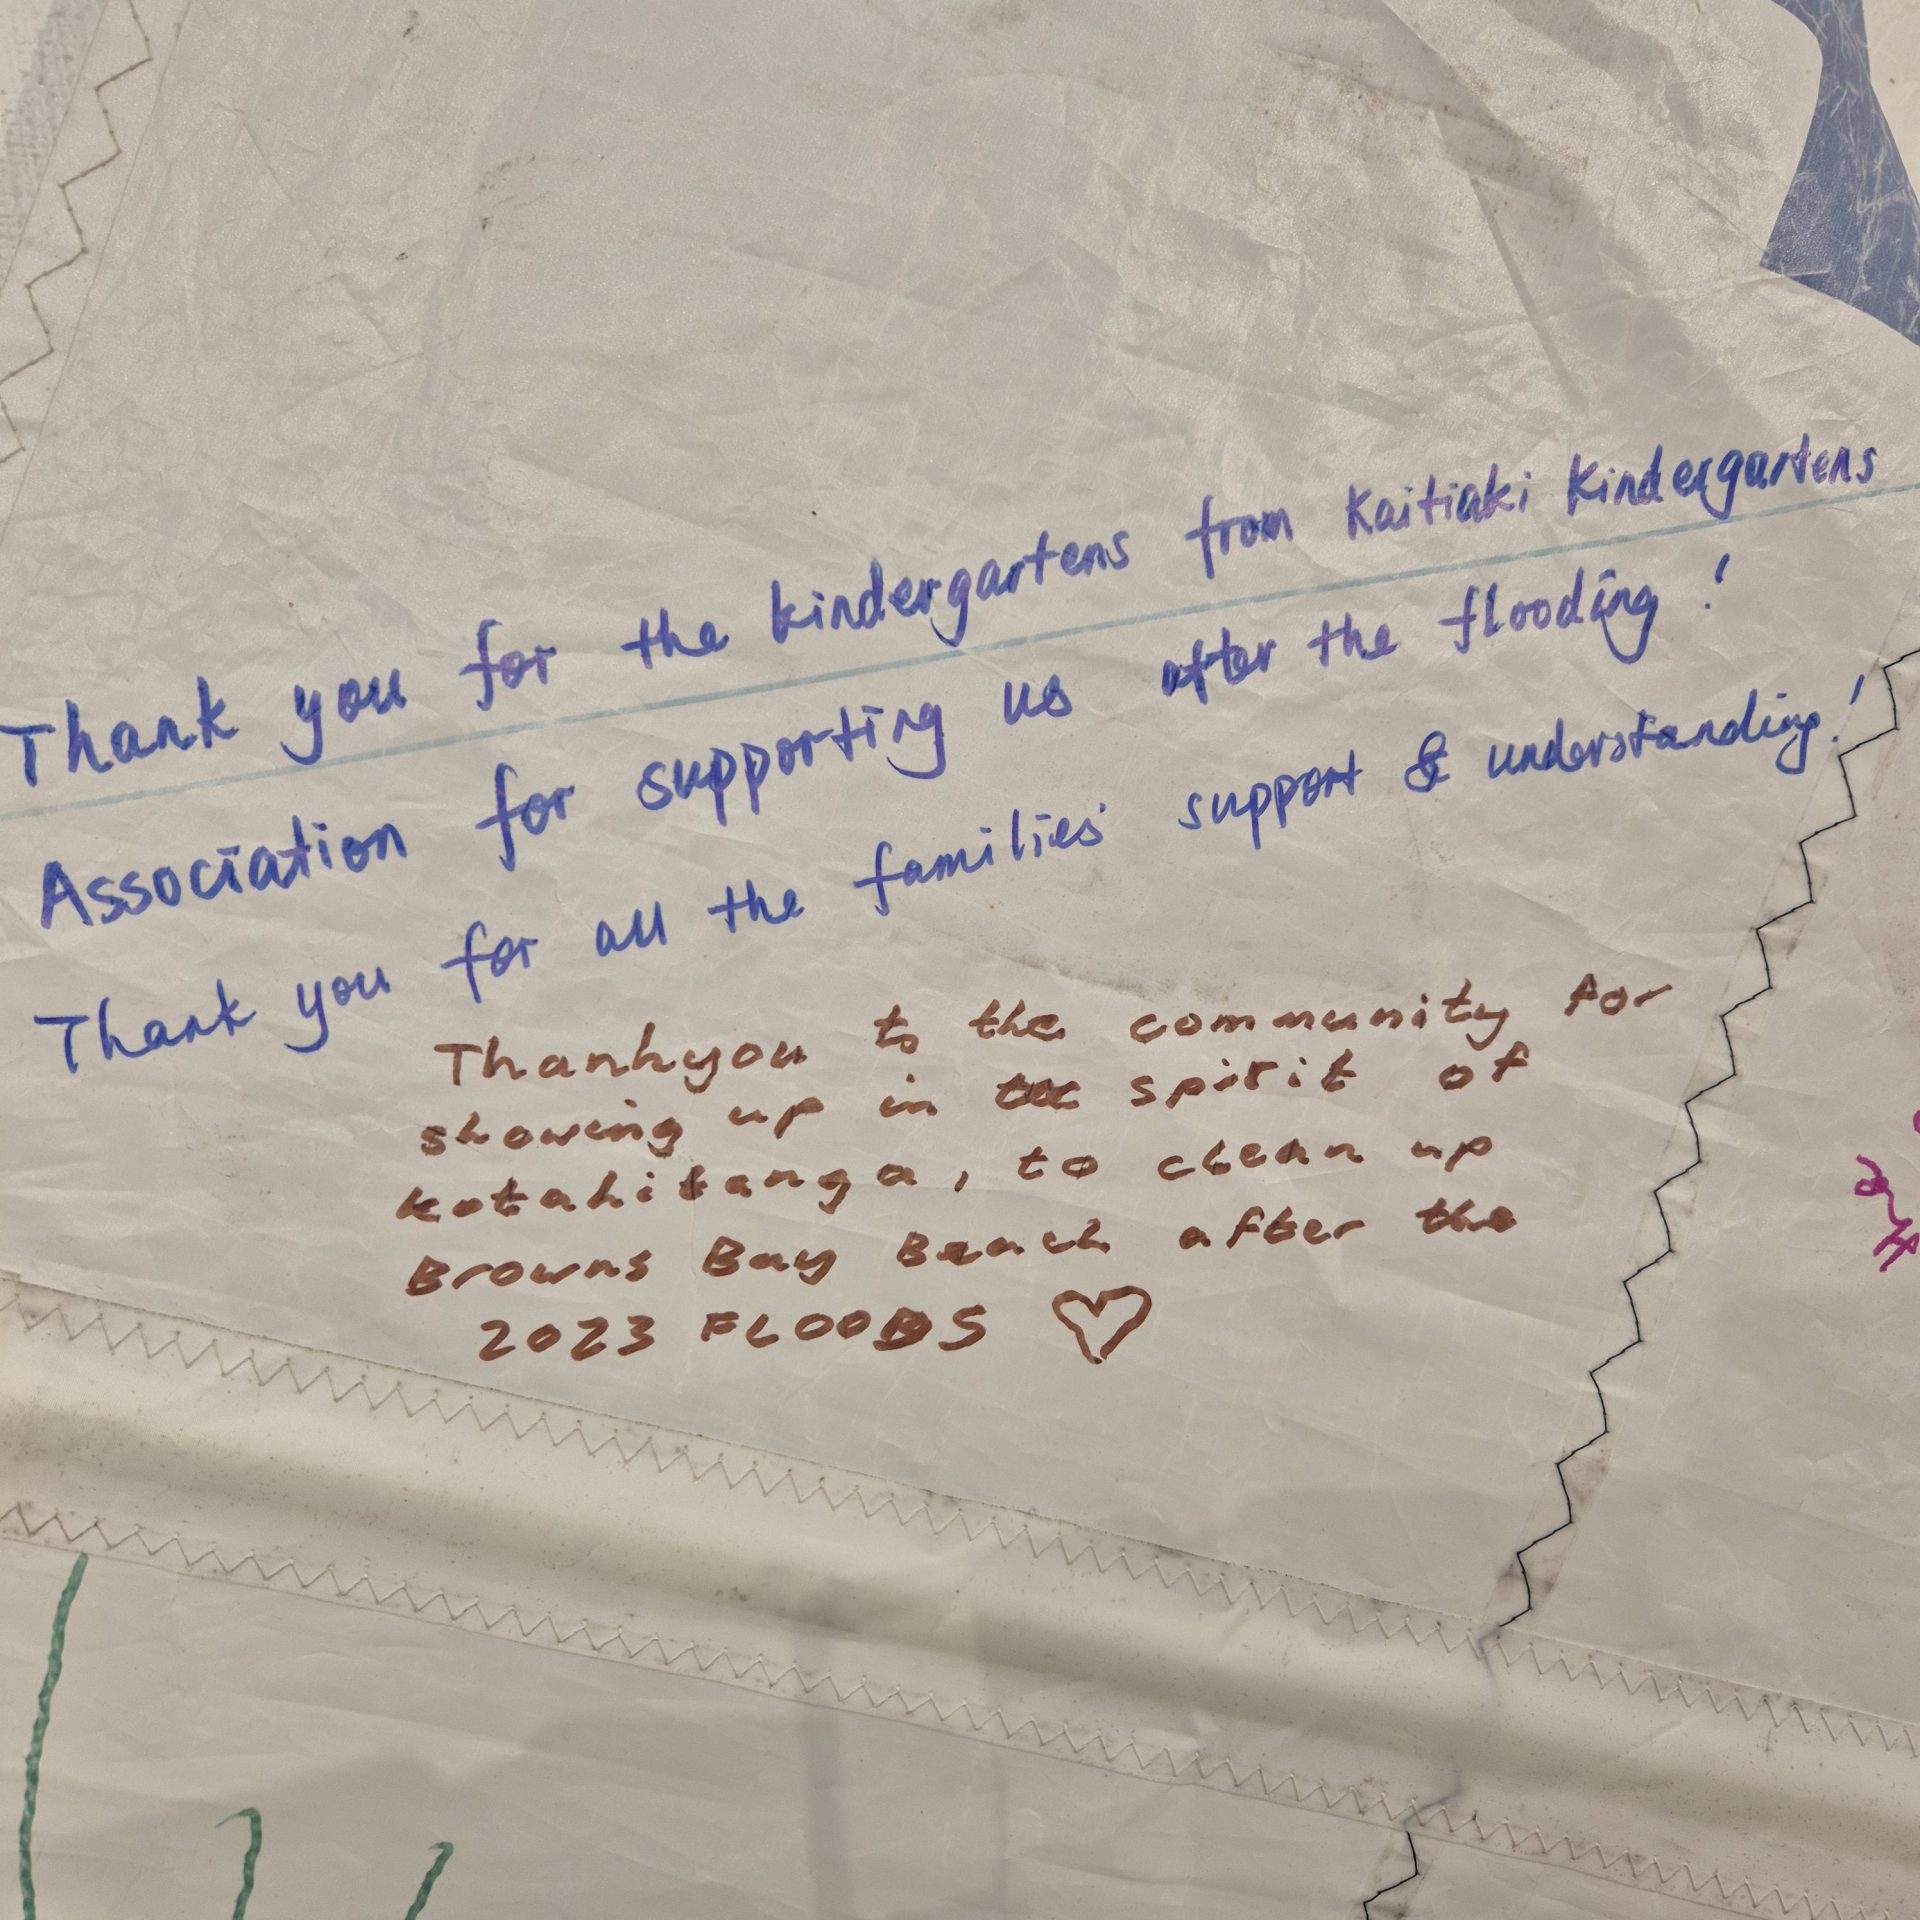 Thank you for the kindergartens from Kaitiaki Kindergartens
Association for supporting us after the flooding!
Thank you for all the families' support & understanding!
Thankyou to the community for
showing up in the spirit of
kotahitanga, to clean up
Browns Bay Beach after the
2023 FLOODS